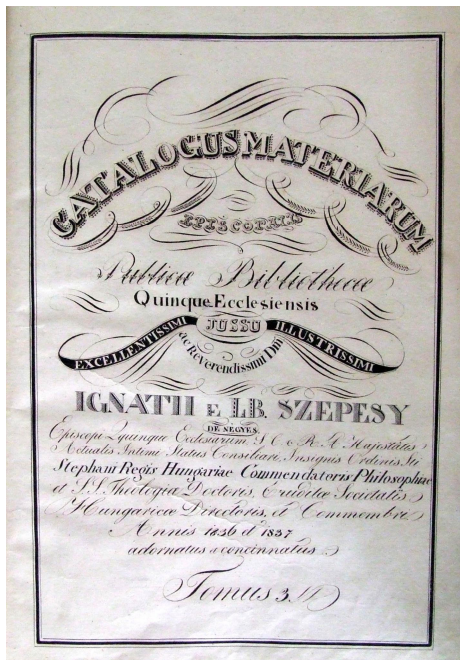 CATALOGUS MATERIARUM
EPISCOPALIS
Publicæ Bibliothecæ
Quinque Ecclesiensis
JUSSU
EXCELLENTISSIMI ILLUSTRISSIMI
ac Reverendissimi Dni
IGNATII E LB. SZEPESY
DE NEGYES
Episcopi Quinque Ecclesiarum, S. C. & R. A. Majestatis
Actualis Intimi Status Consiliarii Insignis Ordinis Sti
Stephani Regis Hungariae Commendatoris Philosophiae
et S.S. Theologiæ Doctoris, Eruditæ Societatis
Hungaricæ Directoris, et Commembri
Annis 1836 et 1837
adornatus et concinnatus
Tomus 3.